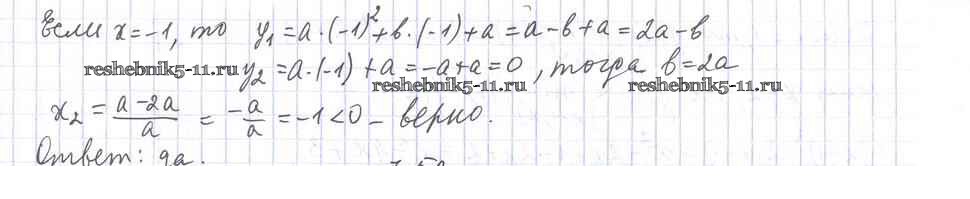 Если x=-1, то y₁=a·(-1)²+b·(-1)+a=a-b+a=2a-b
reshebnik5-11.ru y₂=a·(-1)+a=-a+a=0, тогда b=2a
reshebnik5-11.ru reshebnik5-11.ru
x₂=\frac{a-2a}{a}=\frac{-a}{a}=-1<0- верно.
Ответ: да.